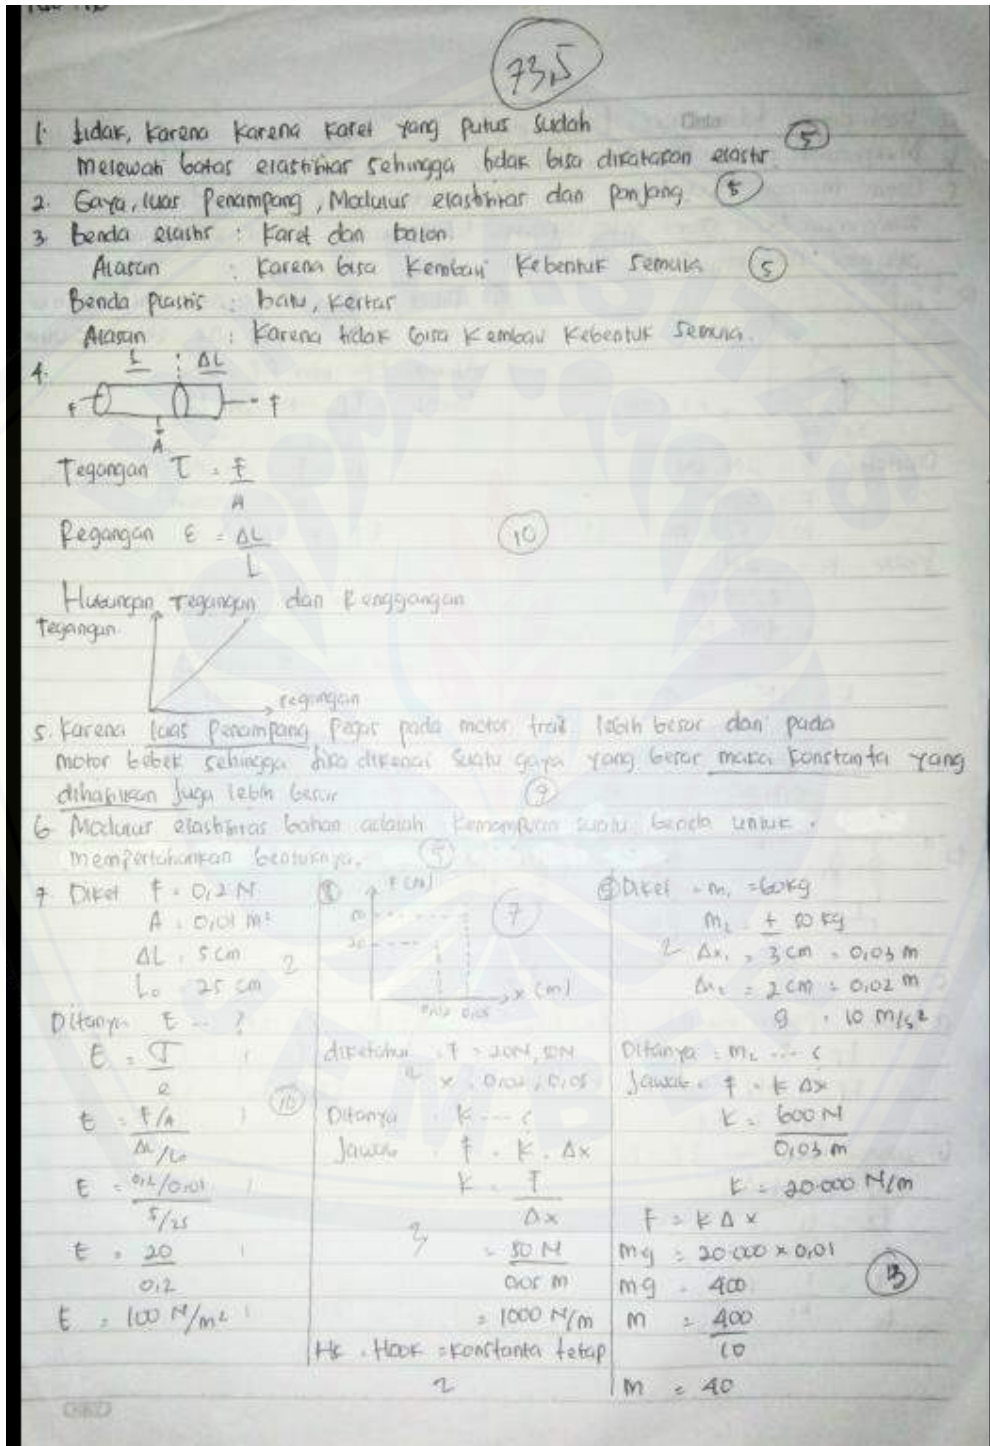 73,5
1. tidak, karena karena karet yang putus sudah
melewati batas elastisitas sehingga tidak bisa dikatakan elastis. 5
2. Gaya, luas Penampang, Modulus elastisitas dan panjang 5
3. Benda elastis : Karet dan balon
Alasan : Karena bisa Kembali Kebentuk Semula 5
Benda Plastis : batu, kertas
Alasan : Karena tidak bisa Kembali Kebentuk Semula.
4. L ΔL
F F
A
Tegangan τ = F
A
Regangan ε = ΔL
L
10
Hubungan Tegangan dan Renggangan
Tegangan
regangan
5. Karena luas Penampang Pegas pada motor trail lebih besar dari pada
motor bebek sehingga bisa dikenai suatu gaya yang besar maka konstanta yang
dihasilkan juga lebih besar 9
6 Modulus elastisitas bahan adalah kemampuan suatu benda untuk
mempertahankan bentuknya.
7 Diket F = 0,2 N
A = 0,01 m²
ΔL = 5 cm
2
L₀ = 25 cm
Ditanya E ... ?
E = σ
e
E = F/A
ΔL/L₀
10
E = 0,2/0,01
5/25
E = 20
0,2
E = 100 N/m²
8 F (N)
7
x (m)
diketahui : F = 20N, 50N
x = 0,02, 0,05
2
Ditanya K ... ?
Jawab F = K . Δx
K = F
Δx
3
= 50 N
0,05 m
= 1000 N/m
Hk . Hook = konstanta tetap
2
9 Diket = m₁ = 60 kg
2 Δx₁ = 3 cm = 0,03 m
Δx₂ = 2 cm = 0,02 m
g = 10 m/s²
Ditanya : m₂ ... ?
Jawab = F = K Δx
K = 600 N
0,03 m
K = 20.000 N/m
F = K Δx
mg = 20.000 × 0,01
mg = 400
13
m = 400
10
m = 40